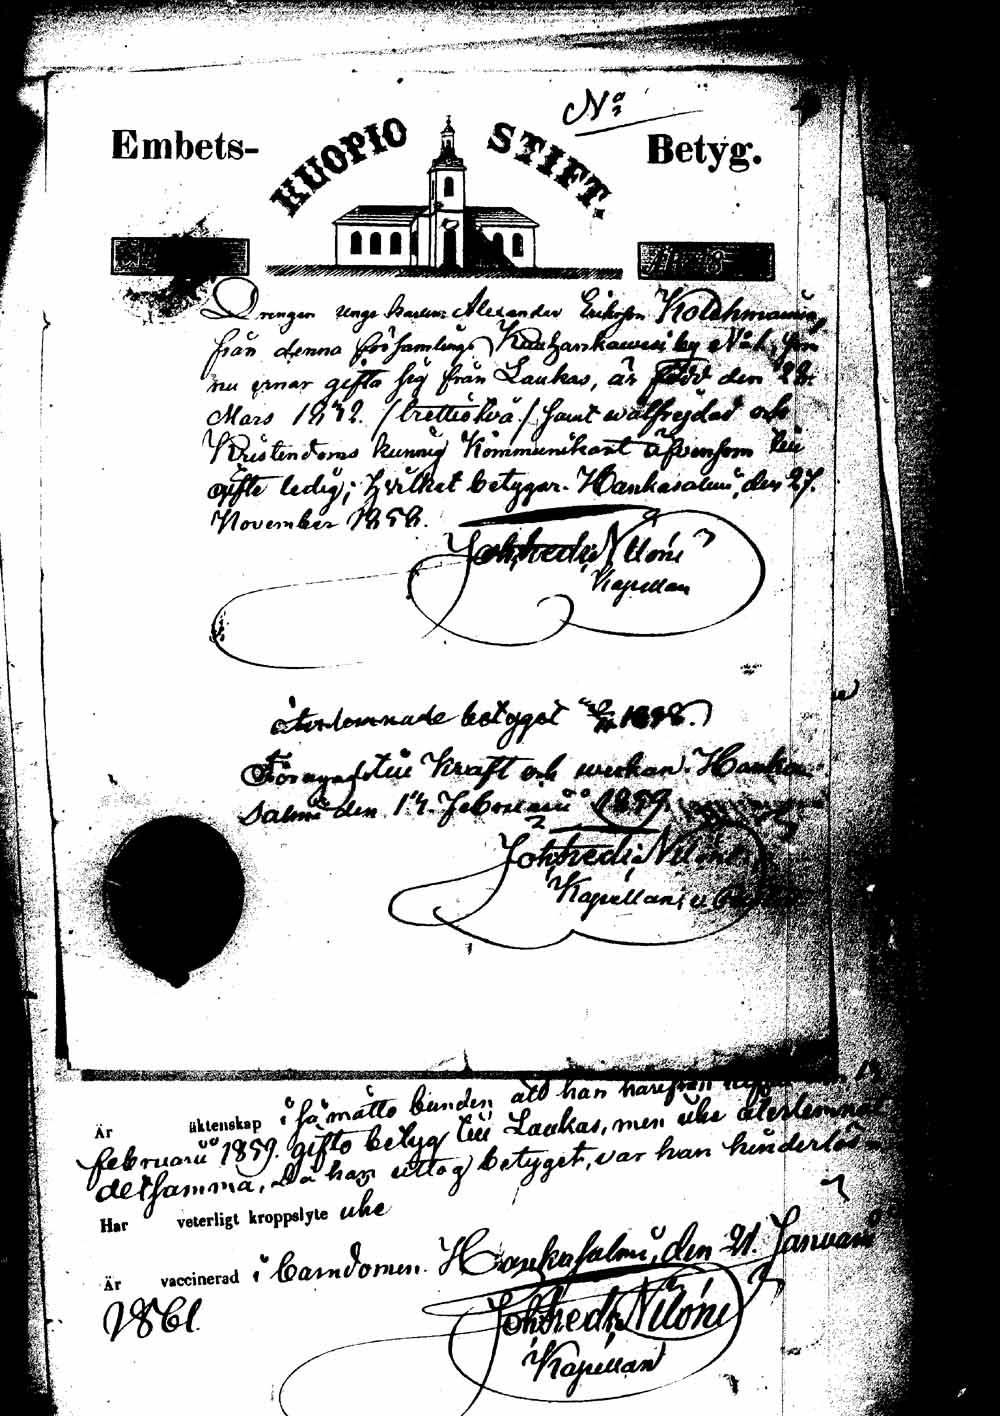 No
Embets- KUOPIO STIFT. Betyg.
Drengen unge karlen Alexander Eriksson Kolehmainen,
från denna församlings by No 1, som
nu ernar gifta sig från Laukas, är född den 28.
Mars 1832. /trettiotvå./ samt wälfrejdad och
Kristendoms kunnig Kommunikant äfvensom till
gifte ledig; hvilket betygar. Hankasalmi, den 27.
November 1858.
Joh. Fredr. Nilóni
Kapellan
återlemnade betyget 1858.
Förnyas till kraft och werkan. Hanka-
salmi den 14. Februarii 1859.
Joh. Fredr. Nilóni
Kapellan
Är äktenskap i så måtto bunden att han härifrån
Februarii 1859. gifto betyg till Laukas, men icke återlemnat
detsamma, Då han uttog betyget, var han hinderlös
Har veterligt kroppslyte icke
Är vaccinerad i barndomen. Hankasalmi, den 21. Januarii
1861.
Joh. Fredr. Nilóni
Kapellan